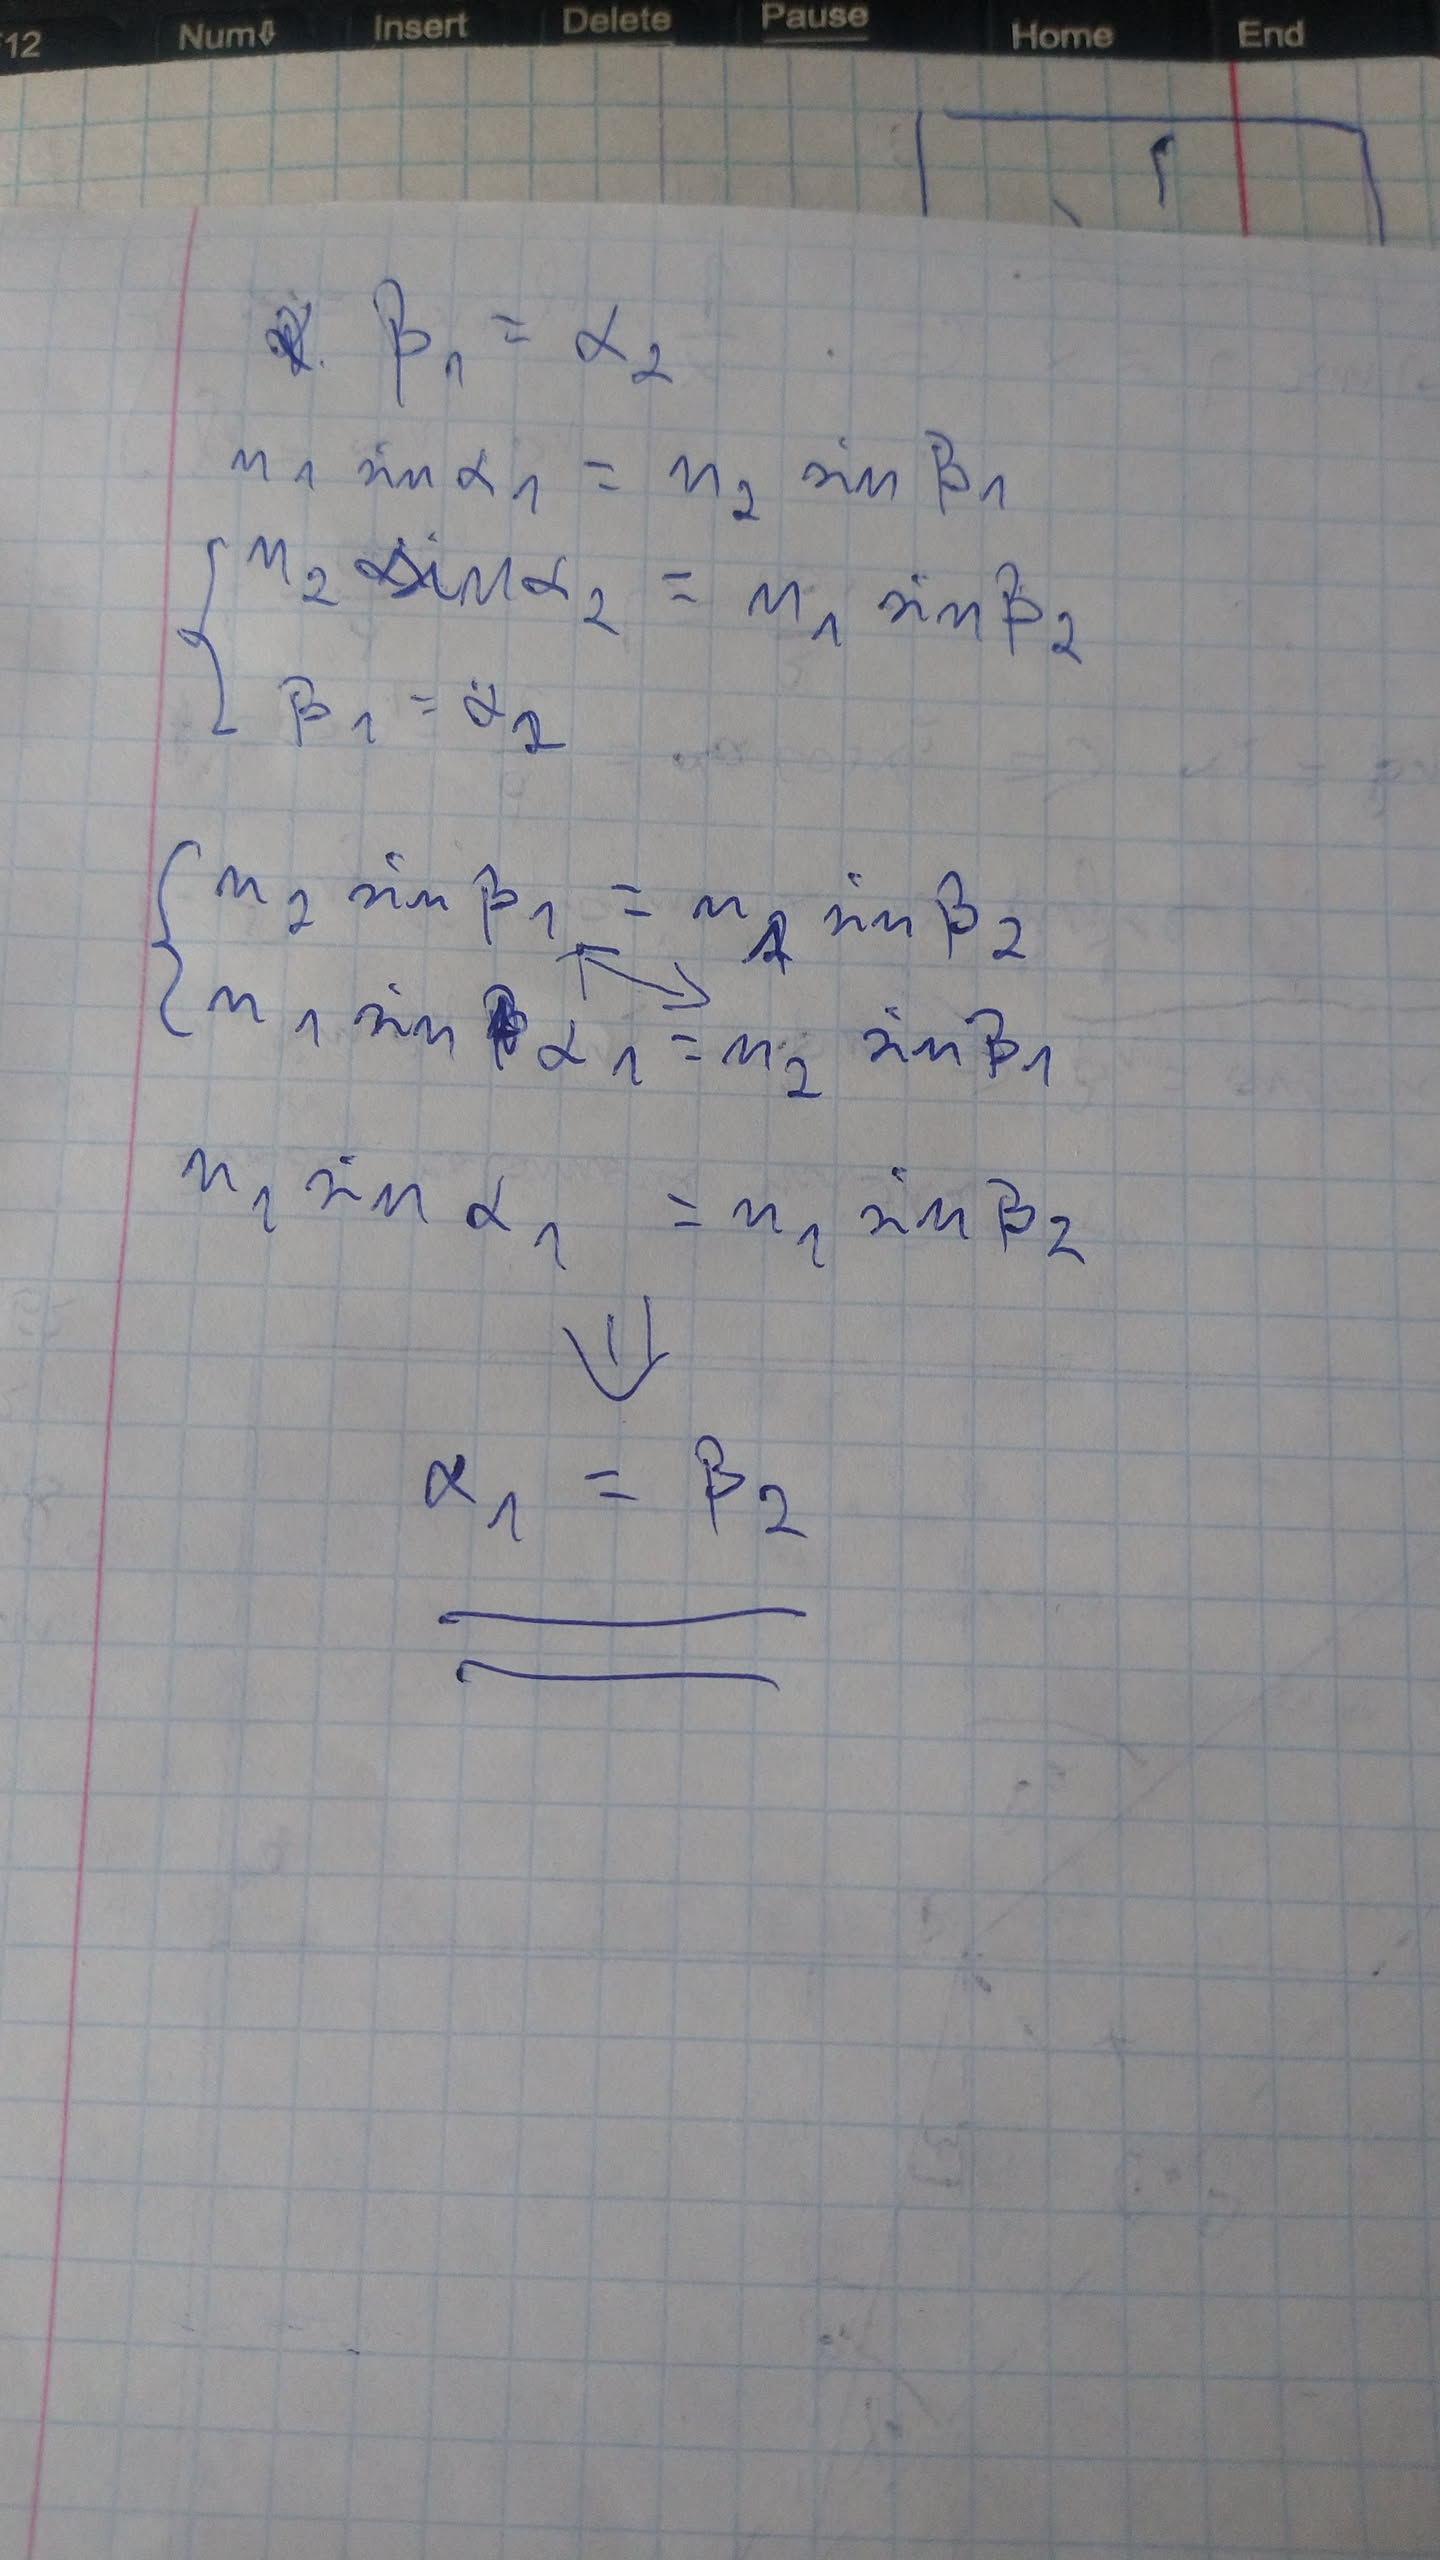 F12 Num⇩ Insert Delete Pause Home End
β₁ = α₂
n₁ sin α₁ = n₂ sin β₁
n₂ sin α₂ = n₁ sin β₂
β₁ = α₂
n₂ sin β₁ = n₁ sin β₂
n₁ sin α₁ = n₂ sin β₁
n₁ sin α₁ = n₁ sin β₂
⇓
α₁ = β₂